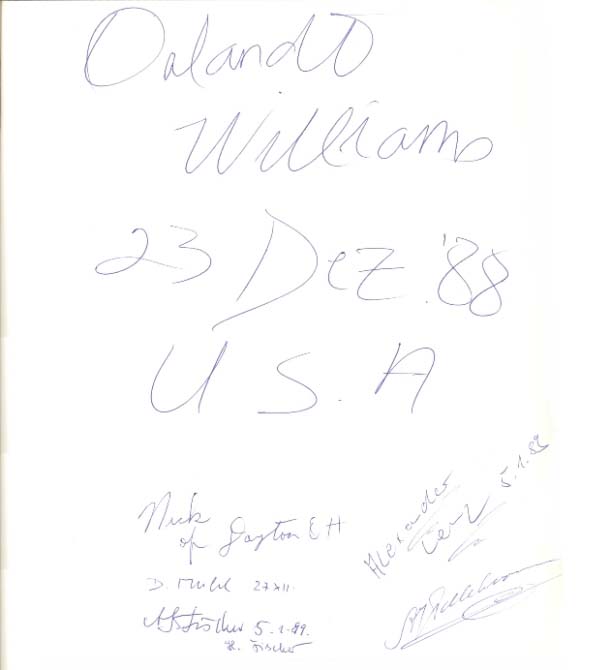 Orlando
Williams
23 Dez. '88
U S. A
Alexander
5.1.89
Nick
of Dayton OH
D. 27 XII.
Fischer 5.1.89.
Fischer